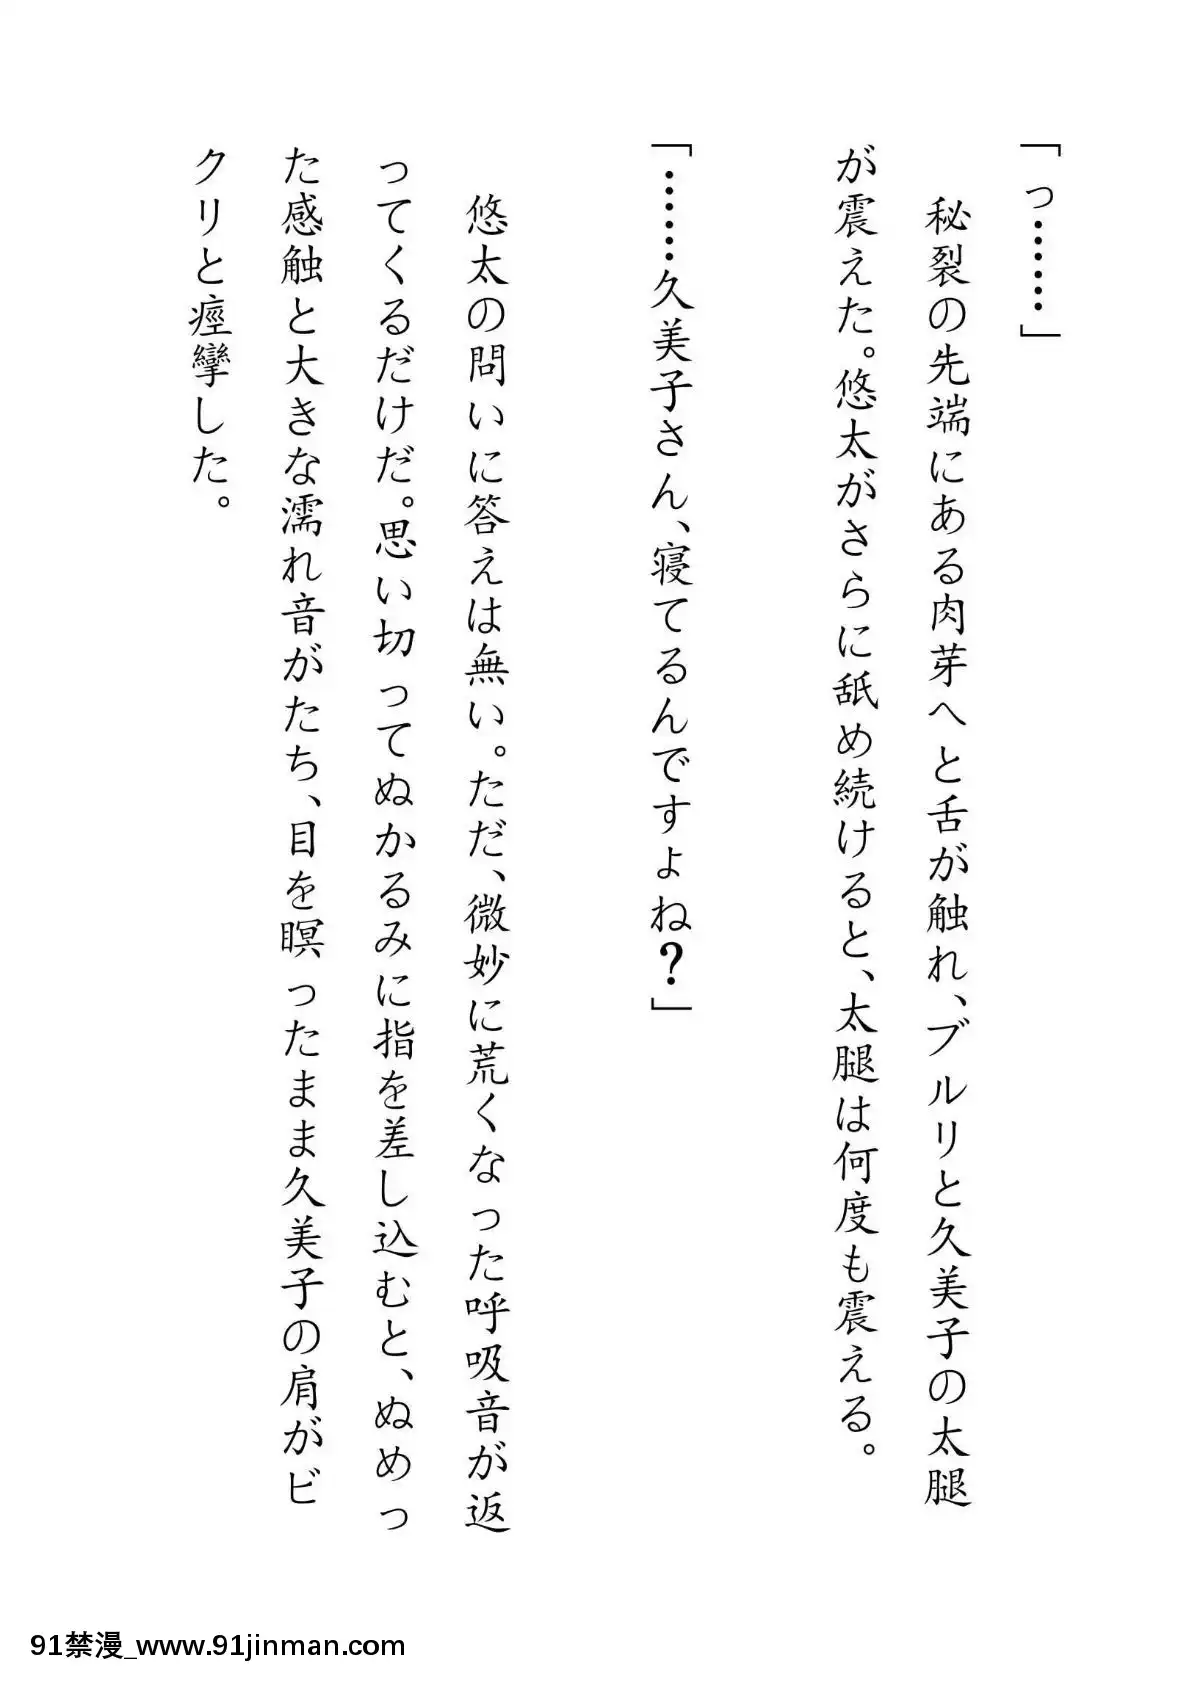 「っ……」
秘裂の先端にある肉芽へと舌が触れ、ブルリと久美子の太腿
が震えた。悠太がさらに舐め続けると、太腿は何度も震える。
「……久美子さん、寝てるんですよね？」
悠太の問いに答えは無い。ただ、微妙に荒くなった呼吸音が返
ってくるだけだ。思い切ってぬかるみに指を差し込むと、ぬめっ
た感触と大きな濡れ音がたち、目を瞑ったまま久美子の肩がビ
クリと痙攣した。
91禁漫_www.91jinman.com